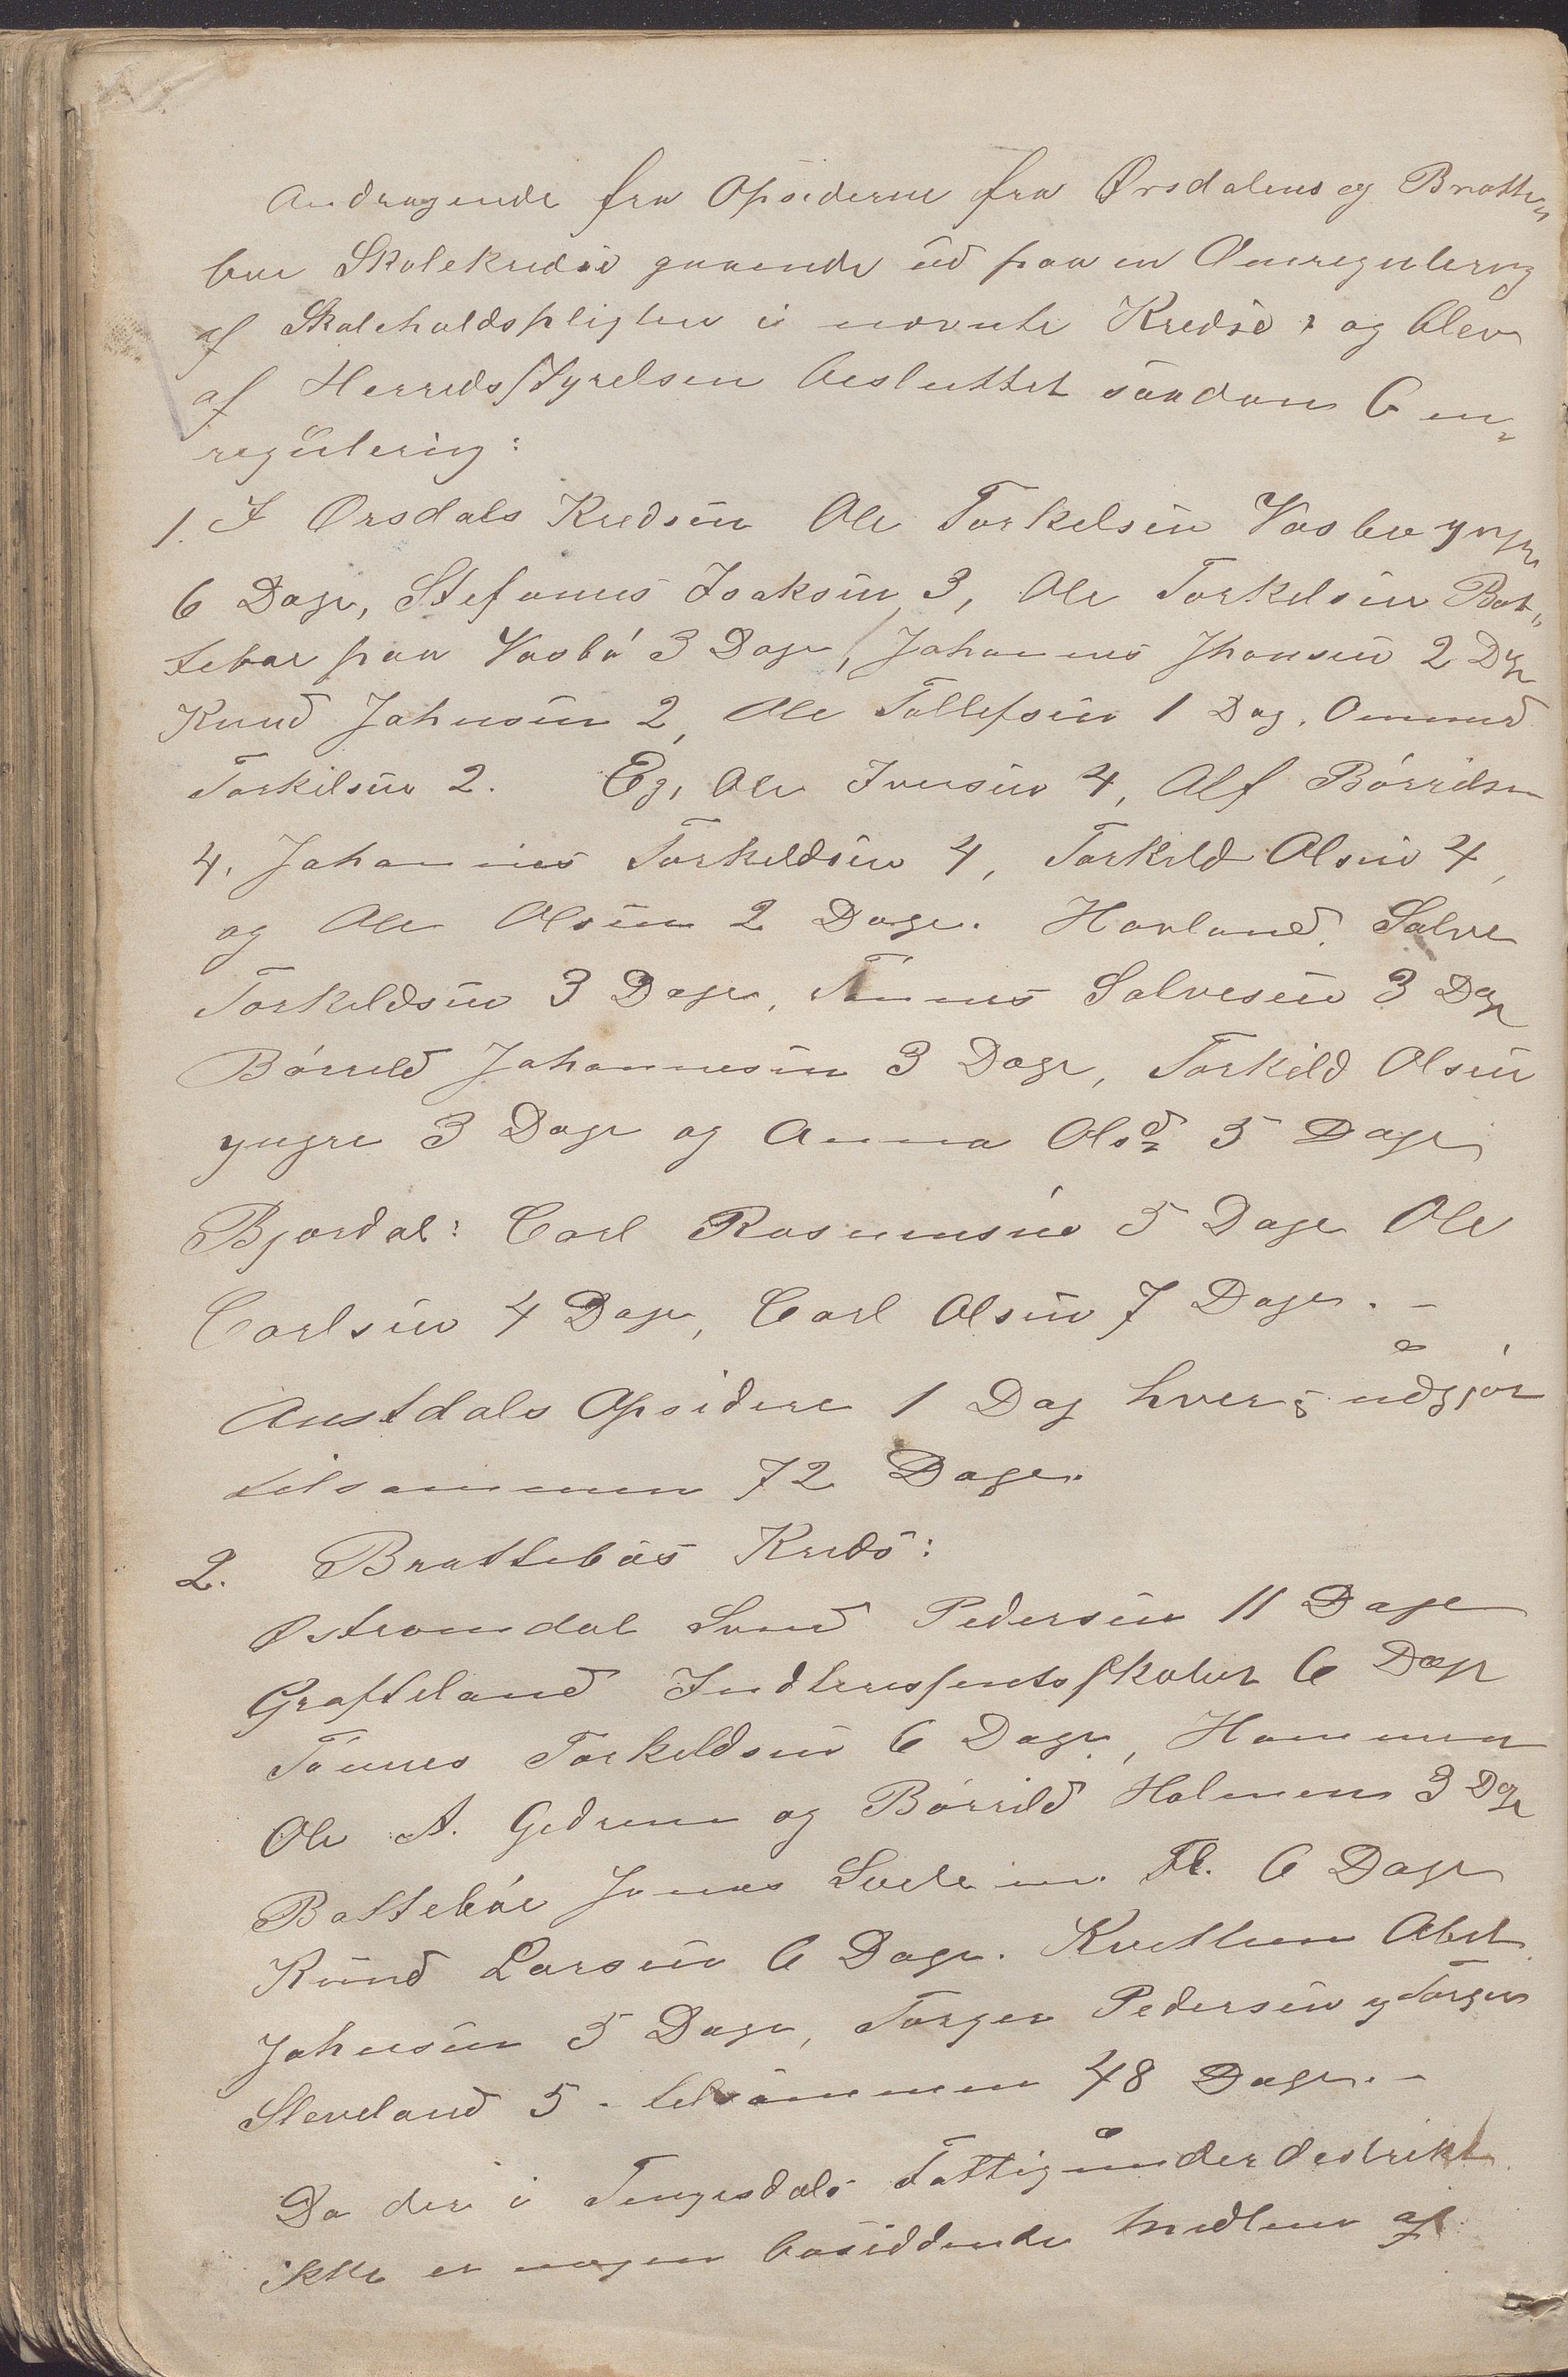 Andragende fra Opsiderne fra Ørsdalens og Bratte„
bøe Skolekredse gaaende ud paa en Omregulering
af Skoleholdspligten i nævnte Kredse, og blev
af Herredsstyrelsen besluttet saadan Om„
regulering:
1. I Ørsdals Kredsen Ole Torkelsen Vasbø yngre
6 Dage, Stefanus Isaksen 3, Ole Torkelsen Bat„
tebøe paa Vasbø 3 Dage, Johannes Jhonsen 2 Dge
Knud Johnsen 2, Ole Tollefsen 1 Dag. Ommund
Torkilsen 2. Eg, Ole Iversen 4, Alf Børridsen
4, Johannes Torkeldsen 4, Torkild Olsen 4,
og Ole Olsen 2 Dage. Hovland. Salve
Torkildsen 3 Dage, Tønnes Salvesen 3 Dage
Børreld Johannesen 3 Dage, Torkild Olsen
yngre 3 Dage og Anna Olsd 5 Dage
Bjordal: Carl Rasmusen 5 Dage Ole
Carlsen 4 Dage, Carl Olsen 7 Dage. -
Austdals Opsidere 1 Dag hver; udgjør
tilsammen 72 Dage.
2. Brattebøs Kreds:
Østromdal Svend Pedersen 11 Dage
Grafteland 6 Dage
Tønnes Torkeldsen 6 Dage, Hammeren
Ole A. Gedrem og Børrild Holmen 3 Dge
Battebøe Jonas Fl. 6 Dage
Knud Larsen 6 Dage. Kvetlun Abel
Johnsen 5 Dage, Torger Pedersen og Torger
Sleveland 5 - tilsammen 48 Dage. -
Da der i Tengesdals Fattigunderdistrikt
ikke er nogen bosiddende Medlem af